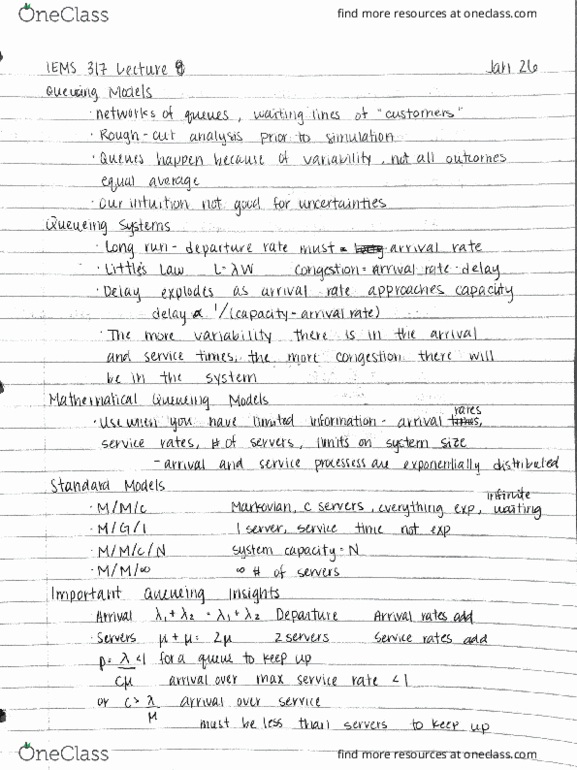 OneClass
find more resources at oneclass.com
IEMS 317 Lecture 8
Jan 26
Queuing Models
· networks of queues, waiting lines of "customers"
· Rough-cut analysis prior to simulation
· Queues happen because of variability, not all outcomes
equal average
· Our intuition not good for uncertainties
Queueing Systems
· Long run - departure rate must = arrival rate
· Little's Law L=λW congestion = arrival rate · delay
· Delay explodes as arrival rate approaches capacity
delay α 1/(capacity - arrival rate)
· The more variability there is in the arrival
and service times, the more congestion there will
be in the system
Mathematical Queueing Models
· Use when you have limited information - arrival rates,
service rates, # of servers, limits on system size
- arrival and service processess are exponentially distributed
Standard Models
· M/M/C Markovian, c servers, everything exp, infinite waiting
· M/G/1 1 server, service time not exp
· M/M/C/N system capacity = N
· M/M/∞ ∞ # of servers
Important Queueing Insights
Arrival λ₁+λ₂ = λ₁+λ₂ Departure Arrival rates add
Servers μ+μ = 2μ 2 servers Service rates add
ρ = λ/cμ <1 for a queue to keep up
arrival over max service rate <1
or c > λ/μ arrival over service
must be less than servers to keep up
OneClass
find more resources at oneclass.com